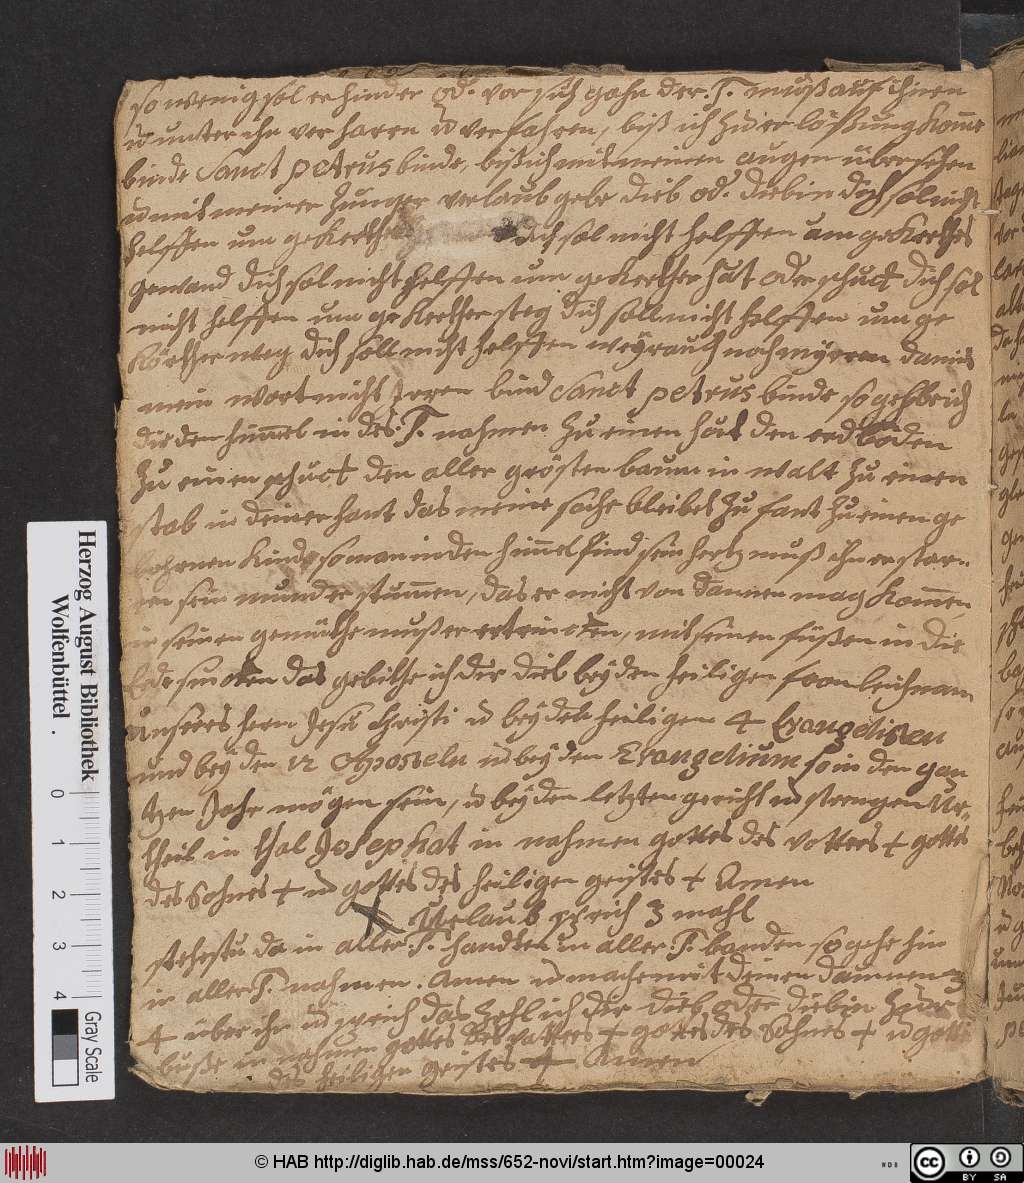 so wenig sol er hinder od. vor sich gahn der .T. muß auf ihnen
ud unter ihn ver harren ud verfahren, biß ich zu er lößung komme
binde Sanct petrus binde, biß ich mit meinen augen übersehen
ud mit meiner Zunger verlaub gebe dieb od. diebin dich sol nicht
helffen um gekerthes dich sol nicht helffen um gekerthes
gewand dich sol nicht helffen um gekerther hut oder schuct dich sol
nicht helffen um gekerther steg dich soll nicht helffen um ge
körther weg dich soll nicht helffen weyrauch noch myrren damit
mein wort nicht Jrren bind Sanct petrus binde so gehbeich
dir den himmel in des .T. nahmen zu einen hut den erdboden
zu einen schuct den aller grösten baum in walt zu einen
stab in deiner hant das meine sache bleibet zu fant zu einen ge
bohrnen kinde so man in den himmel find sein hertz muß ihn erstar-
ren sein mund erstummen, das er nicht von dannen mag kommen
in seinen gemüthe muß er ertrincken, mit seinen füßen in die
Erde sincken das gebithe ich dir dieb bey den heiligen fronleichnam
unseres hern Jesu Christi ud bey den heiligen 4 Evangelisten
und bey den 12 Aposteln ud bey den Evangelium so in den gan
tzen Jahr mögen sein, ud bey den letzten gericht ud strengen Ur-
theil in thal Josephat in nahmen gottes des vatters + gottes
des Sohnes + ud gottes des heiligen geistes + Amen
Verlaub sprich 3 mahl
stehestu da in aller .T. handten in aller .T. banden so gehe hin
in aller T. nahmen. Amen ud mache mit deinen daumen 3
+ über ihn ud sprich das zehl ich dir dieb oder diebin zur
buße in nahmen gottes des vatters + gottes des Sohnes + ud gottes
des heiligen geistes + Amen
Herzog August Bibliothek
Wolfenbüttel .
0 1 2 3 4
Gray Scale
© HAB http://diglib.hab.de/mss/652-novi/start.htm?image=00024
cc BY SA